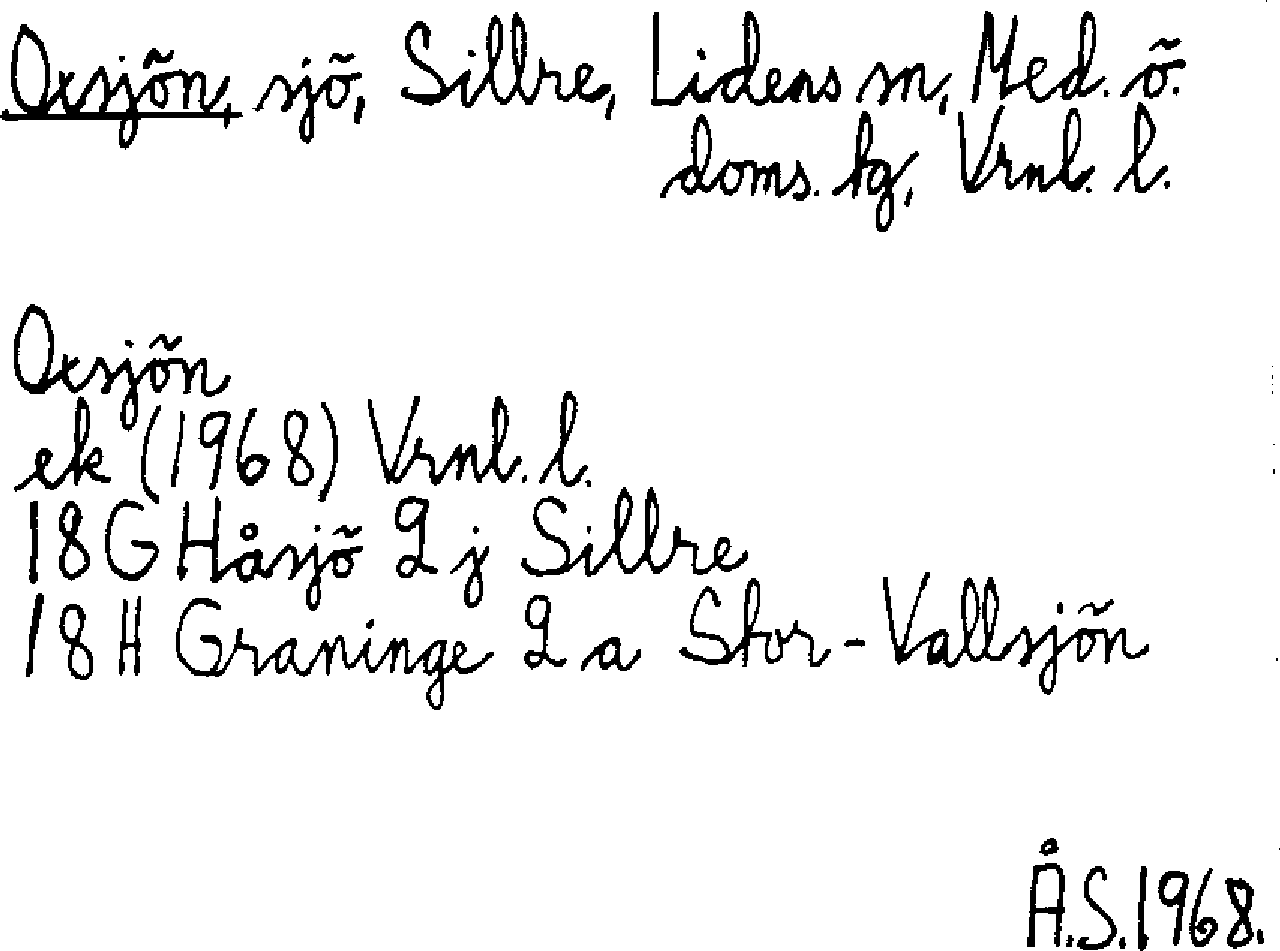 Oxsjön, sjö, Sillre, Lidens sn, Med. ö.
doms. lg, Vrnl. l.
Oxsjön
ek (1968) Vrnl. l.
18G Håsjö 2j Sillre
18H Graninge 2a Stor-Vallsjön
Å.S. 1968.